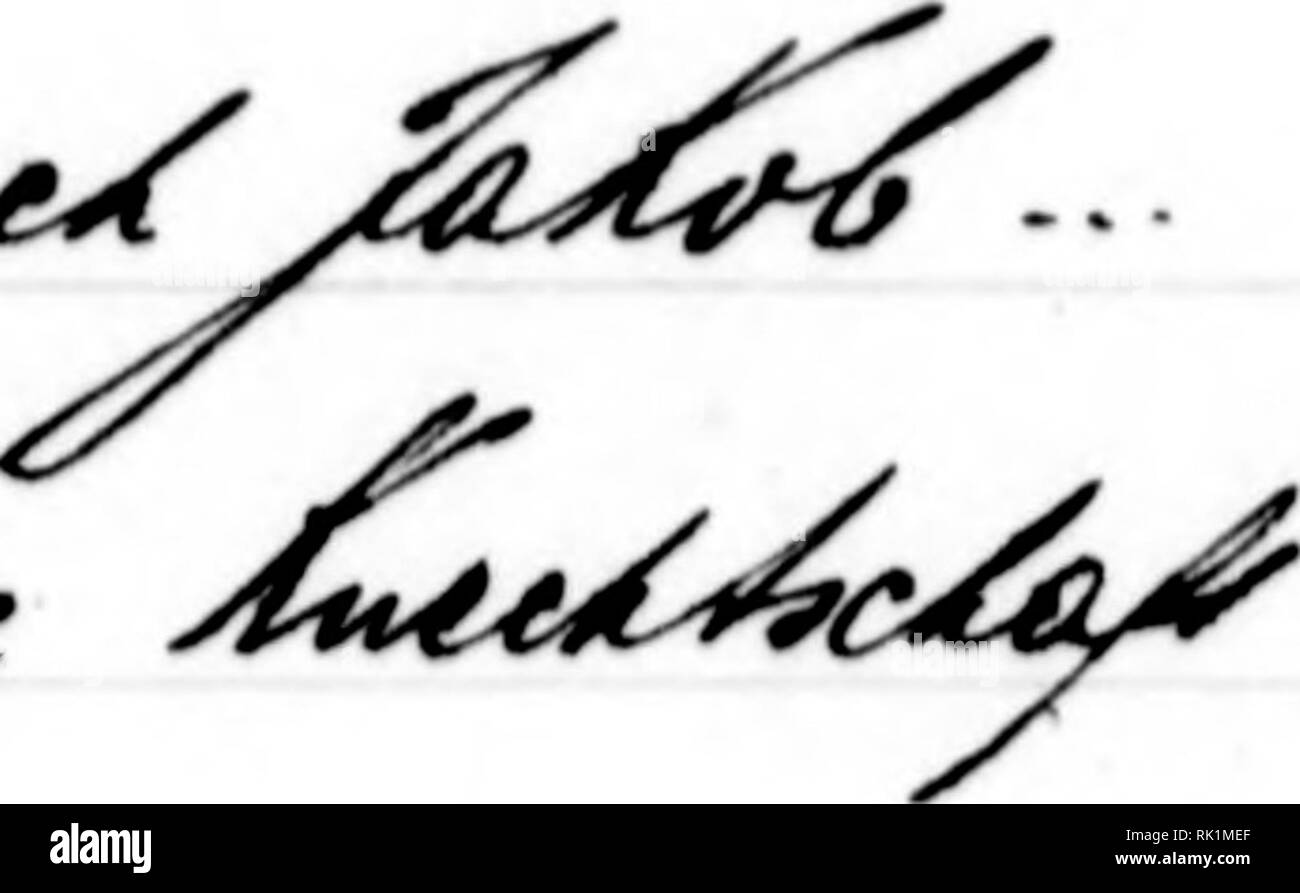 ch Jakob ...
Knechtschaft
alamy
Image ID: RK1MEF
www.alamy.com